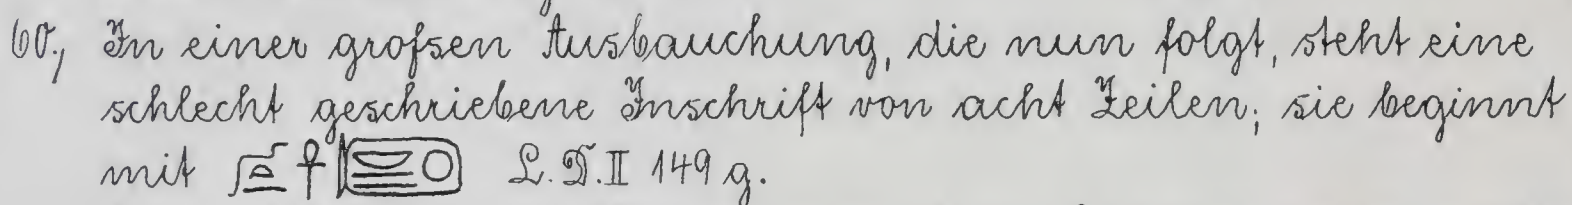 60., In einer grofsen Ausbauchung, die nun folgt, steht eine
schlecht geschriebene Inschrift von acht Zeilen; sie beginnt
mit L.D.II 149 g.